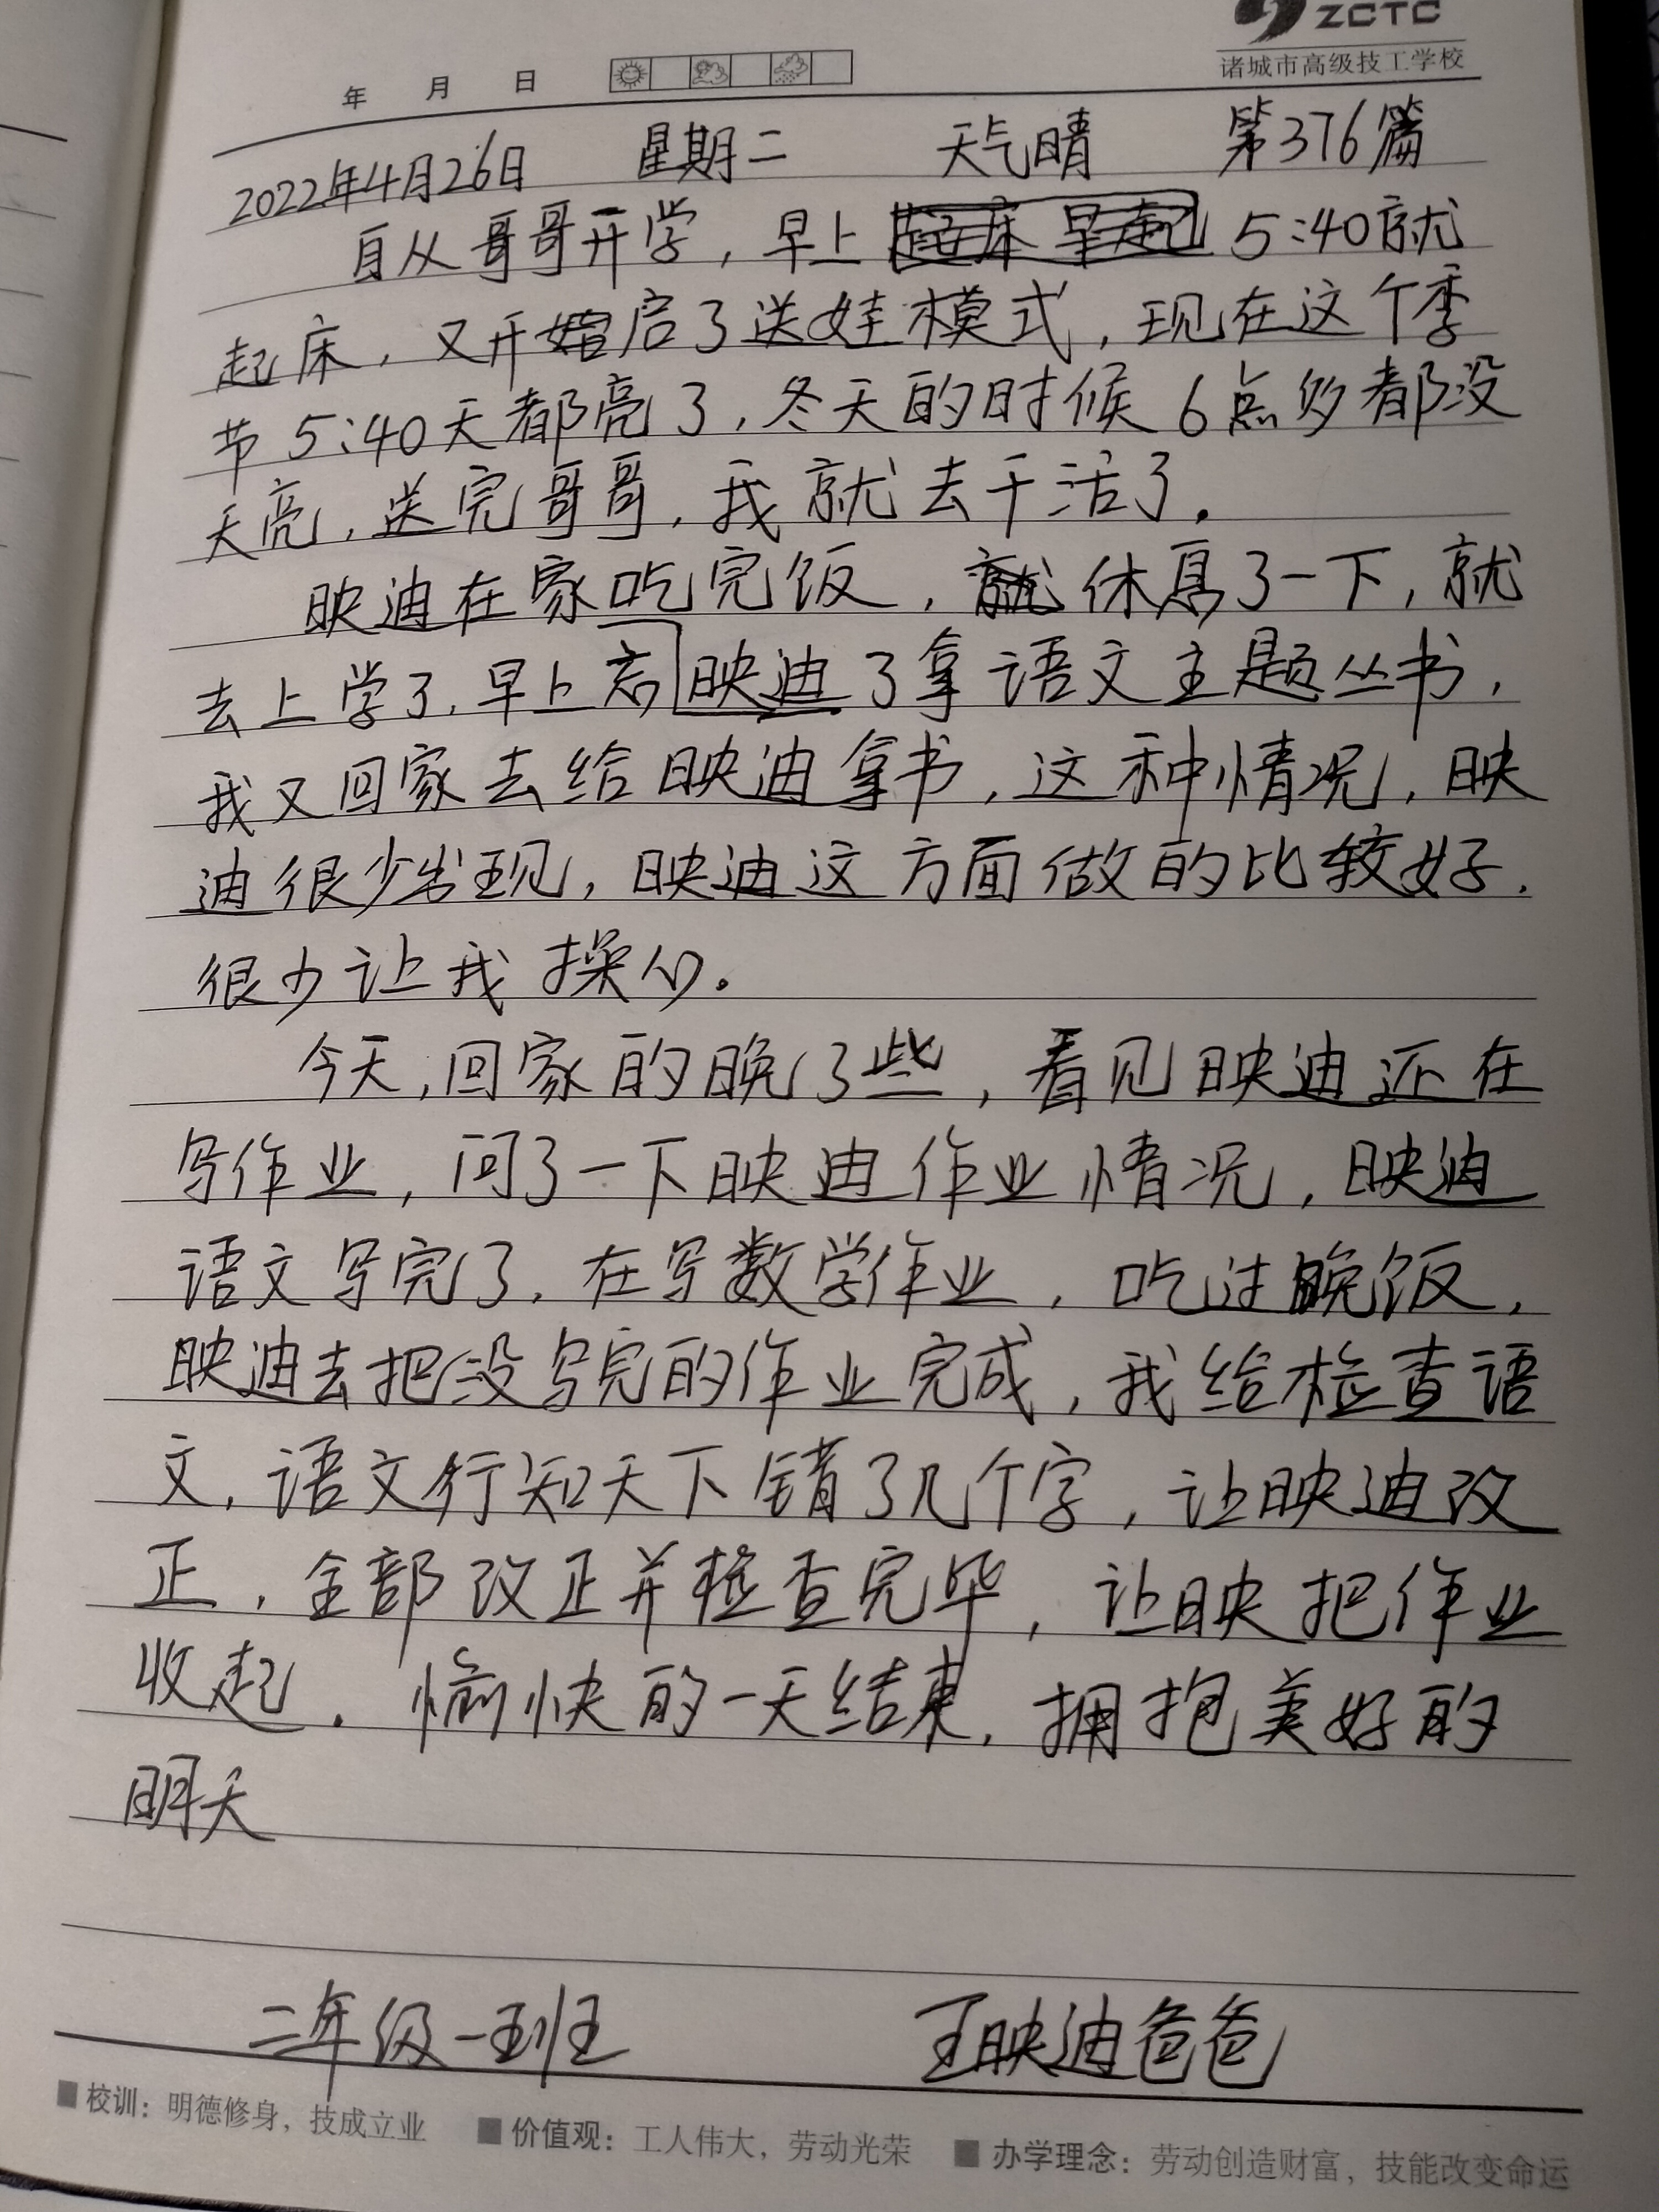 ZCTC
诸城市高级技工学校
年 月 日
2022年4月26日 星期二 天气晴 第376篇
自从哥哥开学，早上 5:40就
起床，又开启了送娃模式，现在这个季
节5:40天都亮了，冬天的时候6点多都没
天亮，送完哥哥，我就去干活了。
映迪在家吃完饭，就休息了一下，就
去上学了，早上忘映迪了拿语文主题丛书，
我又回家去给映迪拿书，这种情况，映
迪很少出现，映迪这方面做的比较好．
很少让我操心。
今天，回家的晚了些，看见映迪还在
写作业，问了一下映迪作业情况，映迪
语文写完了，在写数学作业，吃过晚饭，
映迪去把没写完的作业完成，我给检查语
文，语文行知天下错了几个字，让映迪改
正，全部改正并检查完毕，让映把作业
收起．愉快的一天结束，拥抱美好的
明天
二年级一班 王映迪爸爸
■校训：明德修身，技成立业 ■价值观：工人伟大，劳动光荣 ■办学理念：劳动创造财富，技能改变命运